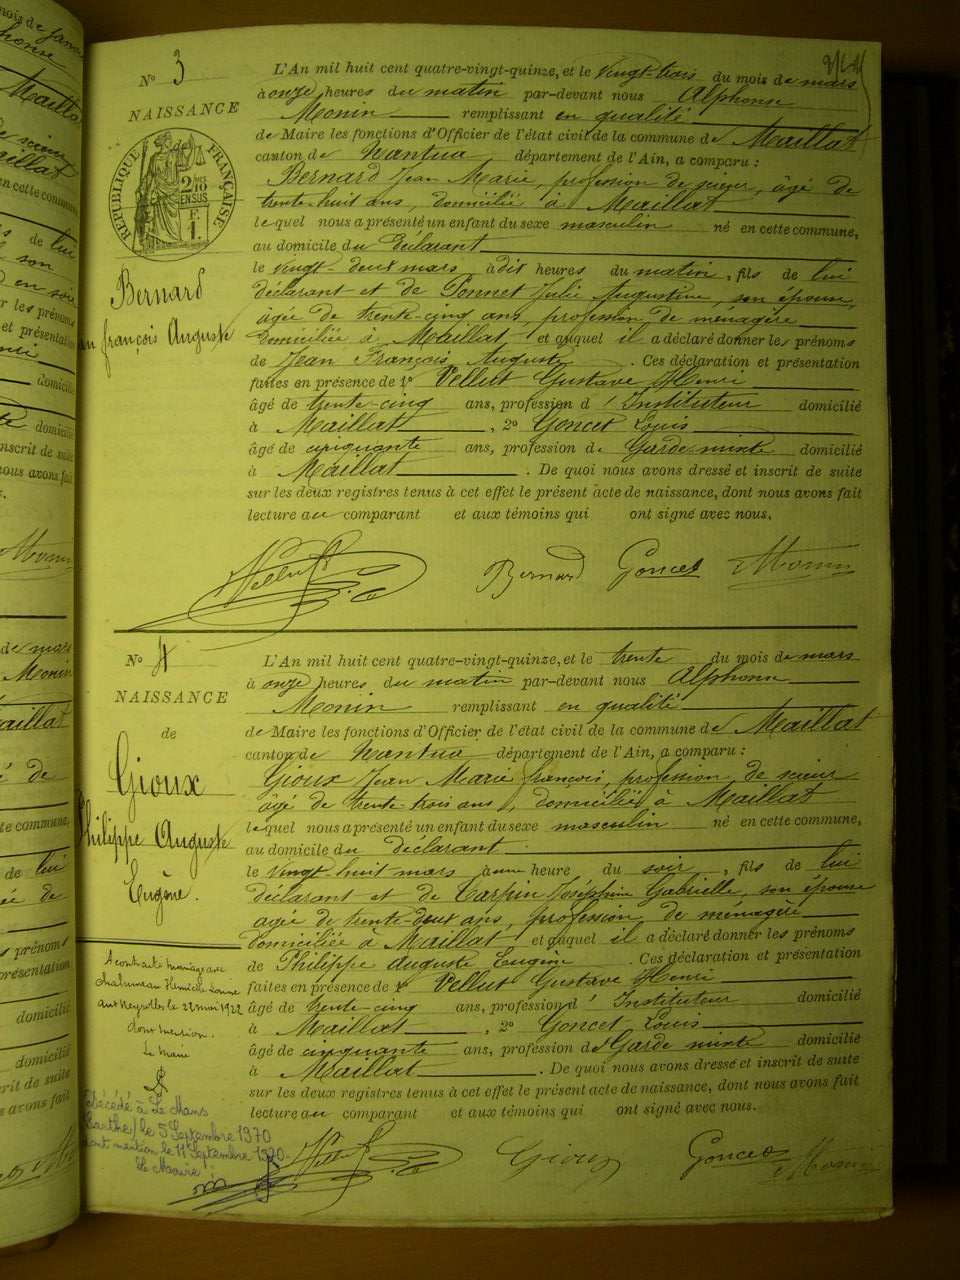 N° 3
NAISSANCE
RÉPUBLIQUE FRANÇAISE
2/10 EN SUS
F. 1.
Bernard
François Auguste
L'An mil huit cent quatre-vingt-quinze, et le vingt-trois du mois de mars
à onze heures du matin par-devant nous Alphonse
Monin remplissant en qualité
de Maire les fonctions d'Officier de l'état civil de la commune de Maillat
canton de Nantua, département de l'Ain, a comparu :
Bernard Jean Marie, profession de scieur, âgé de
trente-huit ans, domicilié à Maillat
lequel nous a présenté un enfant du sexe masculin né en cette commune,
au domicile du Déclarant
le vingt-deux mars, à dix heures du matin, fils de lui
déclarant et de Ponnet Julie Augustine, son épouse,
âgée de trente-cinq ans, profession de ménagère
domiciliée à Maillat et auquel il a déclaré donner les prénoms
de Jean François Auguste. Ces déclaration et présentation
faites en présence de 1° Vellut Gustave Henri
âgé de trente-cinq ans, profession d'Instituteur domicilié
à Maillat, 2° Goncet Louis
âgé de cinquante ans, profession de Garde mixte domicilié
à Maillat. De quoi nous avons dressé et inscrit de suite
sur les deux registres tenus à cet effet le présent acte de naissance, dont nous avons fait
lecture au comparant et aux témoins qui ont signé avec nous.
Vellut Bernard Goncet Monin
N° 4
NAISSANCE
de
Gioux
Philippe Auguste
Eugène.
L'An mil huit cent quatre-vingt-quinze, et le trente du mois de mars
à onze heures du matin par-devant nous Alphonse
Monin remplissant en qualité
de Maire les fonctions d'Officier de l'état civil de la commune de Maillat
canton de Nantua département de l'Ain, a comparu :
Gioux Jean Marie François, profession de scieur
âgé de trente-trois ans, domicilié à Maillat
lequel nous a présenté un enfant du sexe masculin né en cette commune,
au domicile du déclarant
le vingt-huit mars à une heure du soir, fils de lui
déclarant et de Carpin Joséphine Gabrielle, son épouse
âgée de trente-deux ans, profession de ménagère
domiciliée à Maillat et auquel il a déclaré donner les prénoms
de Philippe Auguste Eugène. Ces déclaration et présentation
faites en présence de 1° Vellut Gustave Henri
âgé de trente-cinq ans, profession d'Instituteur domicilié
à Maillat, 2° Goncet Louis
âgé de cinquante ans, profession de Garde mixte domicilié
à Maillat. De quoi nous avons dressé et inscrit de suite
sur les deux registres tenus à cet effet le présent acte de naissance, dont nous avons fait
lecture au comparant et aux témoins qui ont signé avec nous.
Vellut Gioux Goncet Monin
A contracté mariage avec
aux Neyrolles le 22 mai 1922
dont mention.
Le Maire
Décédé à Le Mans
(Sarthe) le 5 Septembre 1970
dont mention le 11 Septembre 1970.
Le Maire